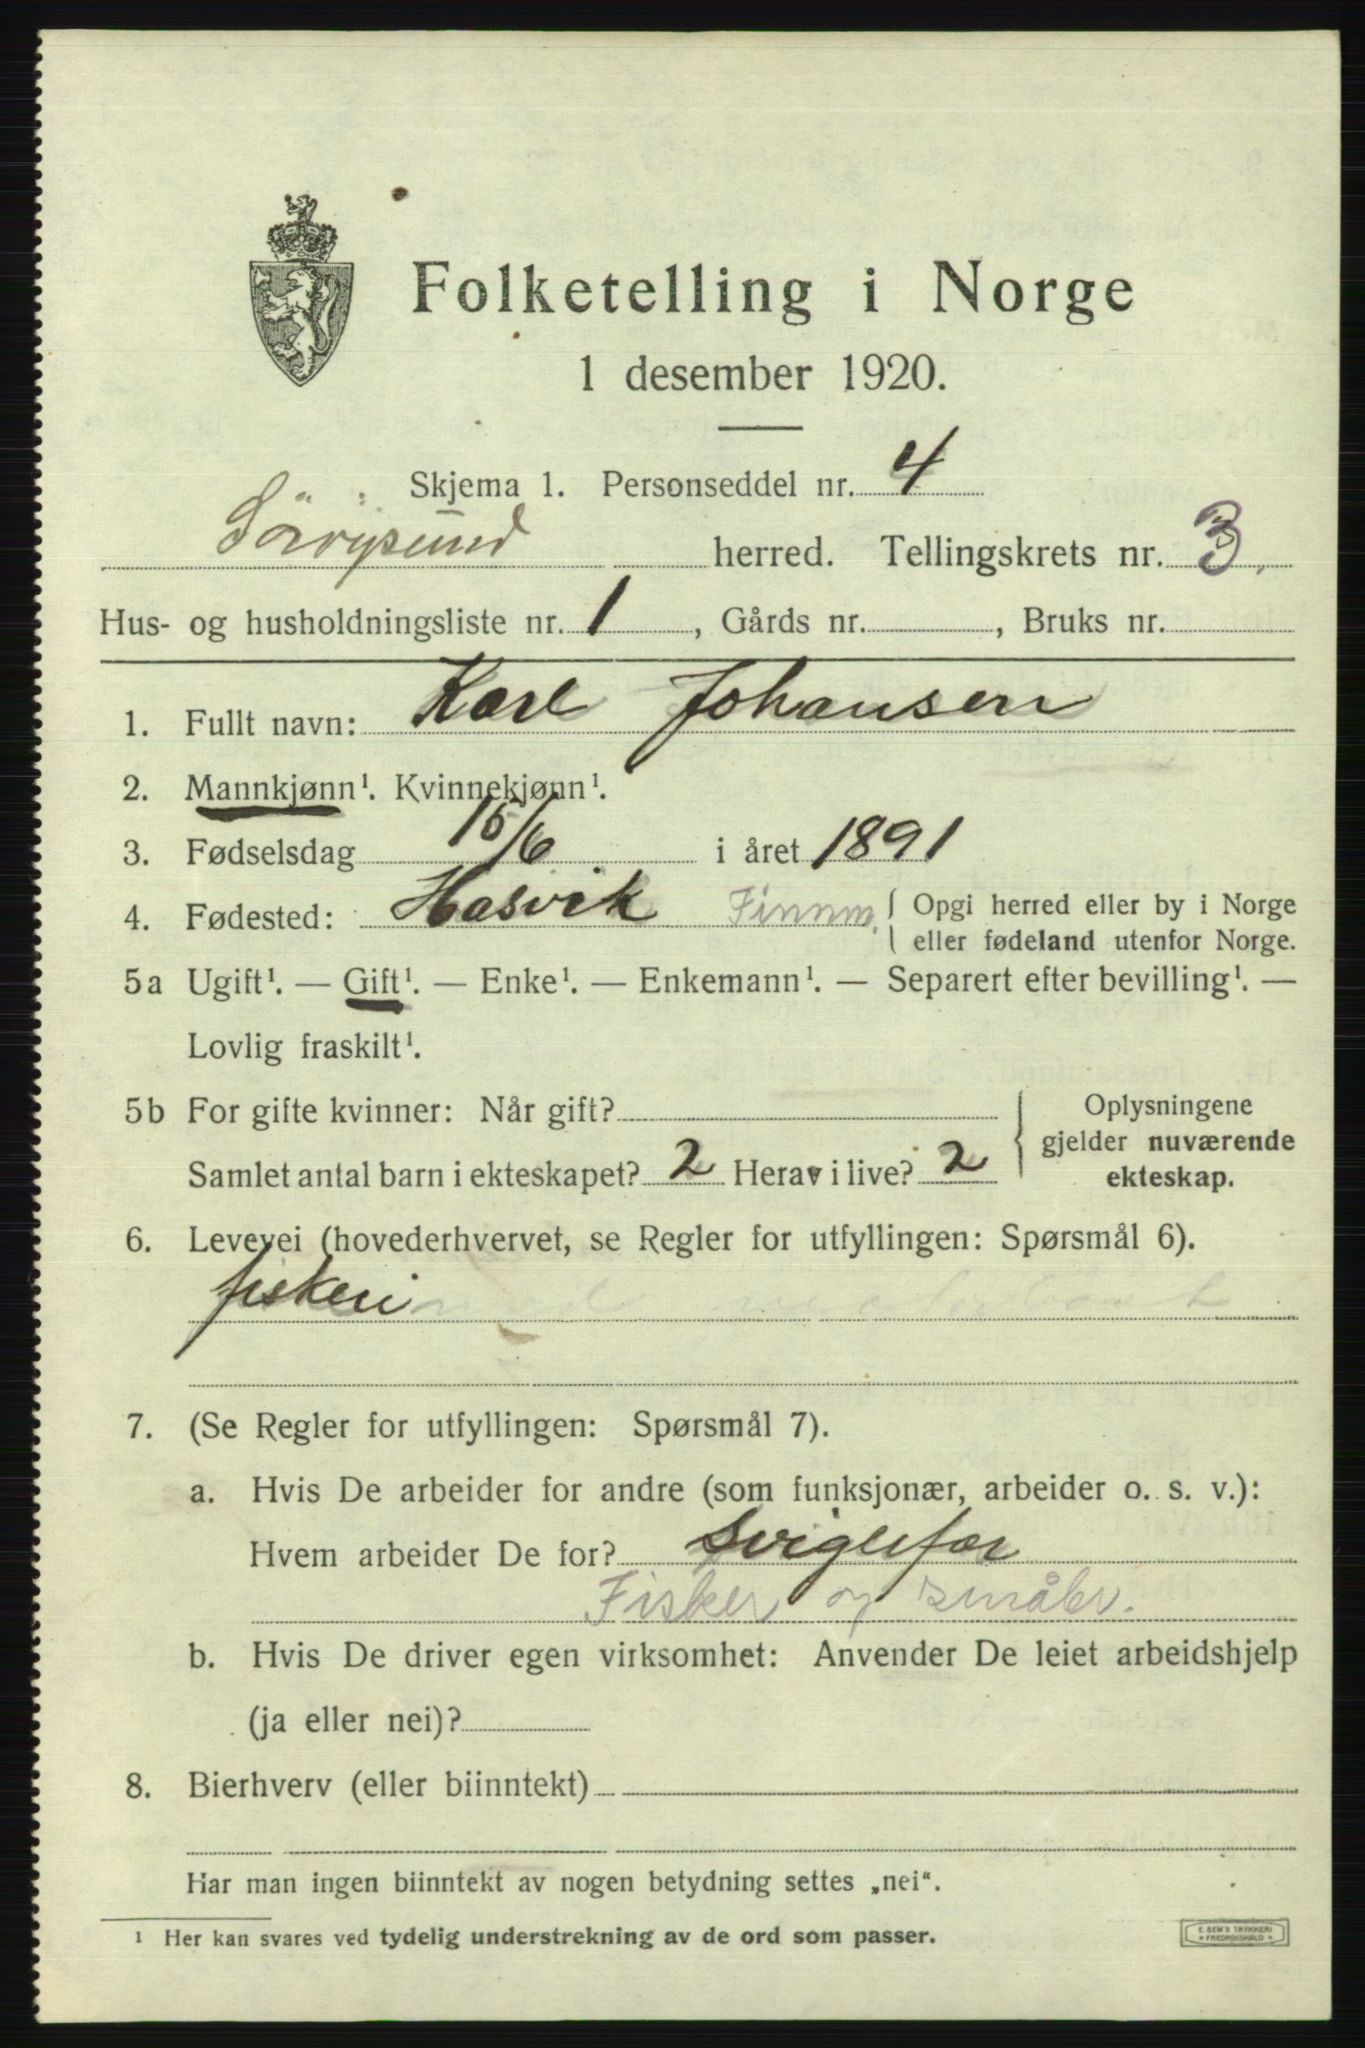 Folketelling i Norge
1 desember 1920.
Skjema 1. Personseddel nr. 4
Sörøysund herred. Tellingskrets nr. 3.
Hus- og husholdningsliste nr. 1, Gårds nr. , Bruks nr.
1. Fullt navn: Karl Johansen
2. Mannkjønn¹. Kvinnekjønn¹.
3. Fødselsdag 15/6 i året 1891
4. Fødested: Hasvik Finnm. { Opgi herred eller by i Norge
eller fødeland utenfor Norge.
5a Ugift¹. — Gift¹. — Enke¹. — Enkemann¹. — Separert efter bevilling¹. —
Lovlig fraskilt¹.
5b For gifte kvinner: Når gift? } Oplysningene
gjelder nuværende
Samlet antal barn i ekteskapet? 2 Herav i live? 2 ekteskap.
6. Levevei (hovederhvervet, se Regler for utfyllingen: Spørsmål 6).
fiskeri
7. (Se Regler for utfyllingen: Spørsmål 7).
a. Hvis De arbeider for andre (som funksjonær, arbeider o. s. v.):
Hvem arbeider De for? svigefar
Fisker og småbr.
b. Hvis De driver egen virksomhet: Anvender De leiet arbeidshjelp
(ja eller nei)?
8. Bierhverv (eller biinntekt)
Har man ingen biinntekt av nogen betydning settes „nei“.
¹ Her kan svares ved tydelig understrekning av de ord som passer.
E. SEM'S TRYKKERI
* FREDRIKSHALD *